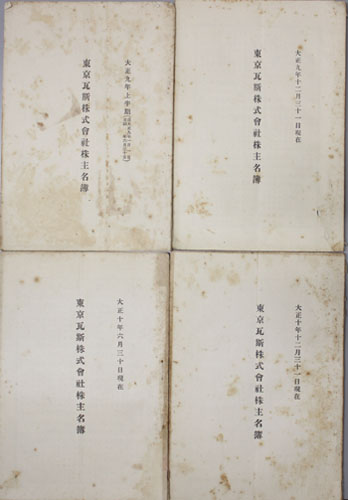 大正九年上半期
東京瓦斯株式會社株主名簿
大正九年十二月三十一日現在
東京瓦斯株式會社株主名簿
大正十年六月三十日現在
東京瓦斯株式會社株主名簿
大正十年十二月三十一日現在
東京瓦斯株式會社株主名簿